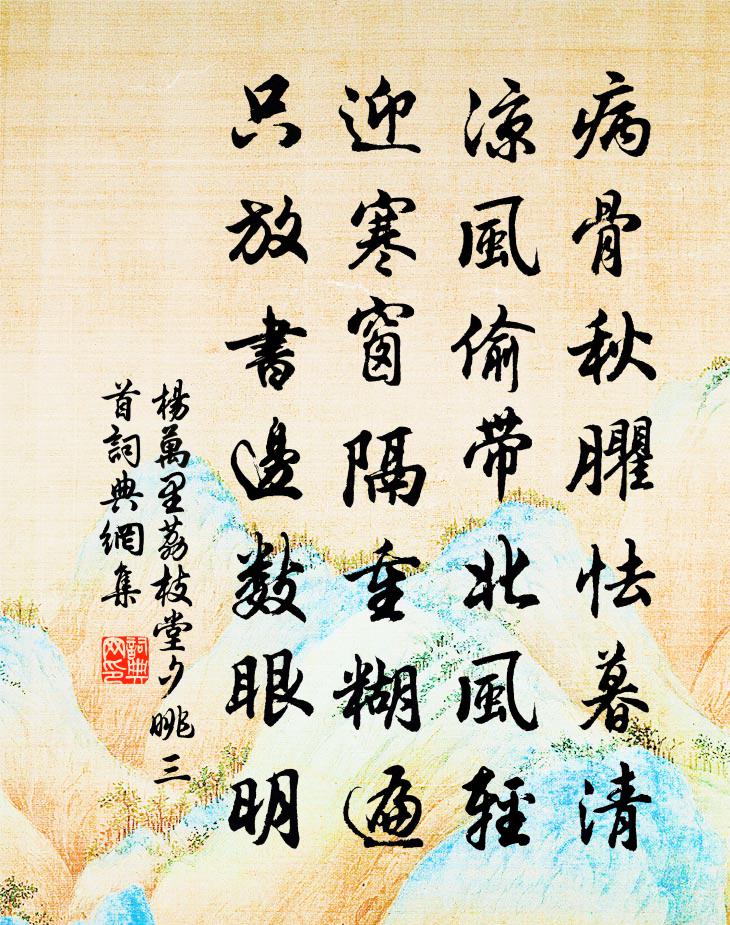 病骨秋臞怯暮清
涼風偷帶北風輕
迎寒窗隔重糊遍
只放書邊數眼明
楊萬里荔枝堂夕眺三
首詞典網集
詞典
网印